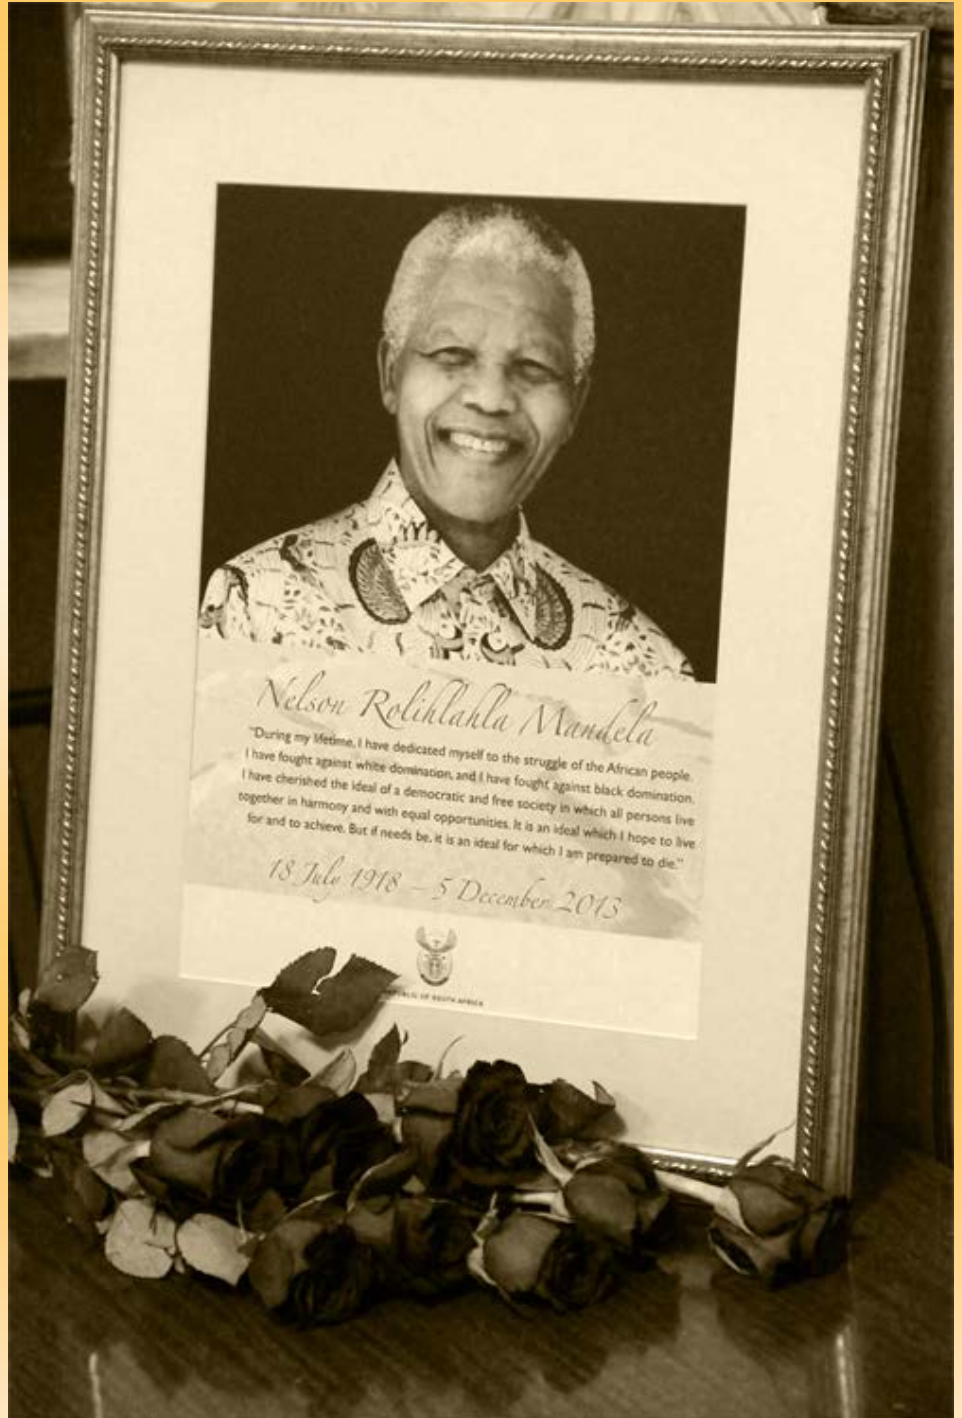 Nelson Rolihlahla Mandela
"During my lifetime, I have dedicated myself to the struggle of the African people.
I have fought against white domination, and I have fought against black domination.
I have cherished the ideal of a democratic and free society in which all persons live
together in harmony and with equal opportunities. It is an ideal which I hope to live
for and to achieve. But if needs be, it is an ideal for which I am prepared to die."
18 July 1918 – 5 December 2013
REPUBLIC OF SOUTH AFRICA